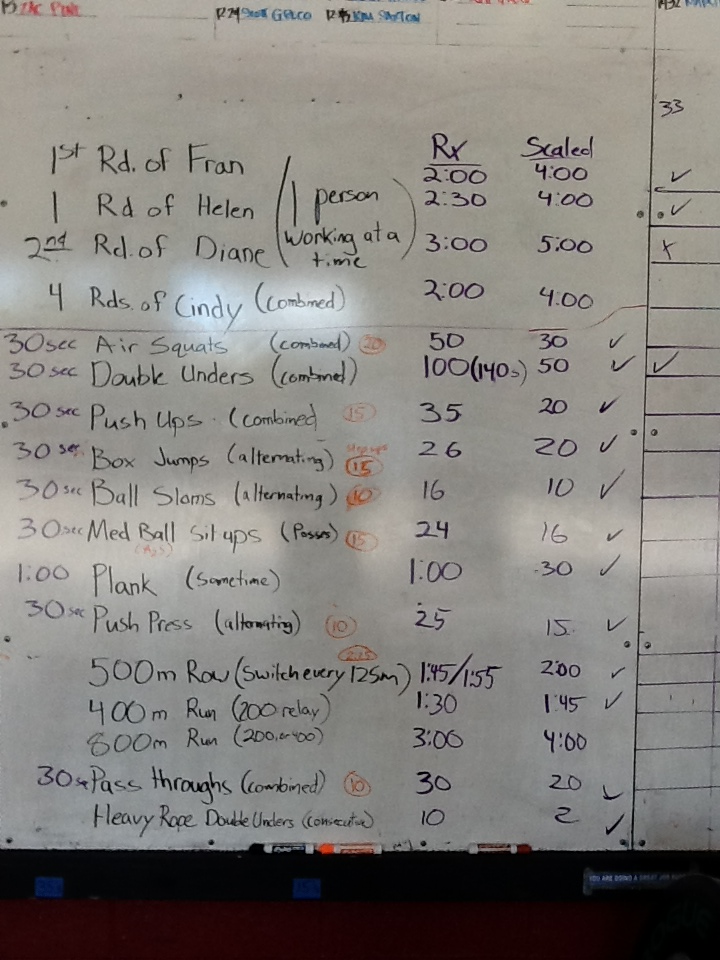 ZAC
SCOTT GELCO KIM SAXTON
33
Rx Scaled
1st Rd. of Fran 2:00 4:00 ✓
1 Rd of Helen 2:30 4:00 ✓
2nd Rd. of Diane 3:00 5:00 x
(1 person working at a time)
4 Rds. of Cindy (combined) 2:00 4:00
30sec Air Squats (combined) 20 50 30 ✓
30sec Double Unders (combined) 100(140s) 50 ✓ ✓
30sec Push Ups (combined 15 35 20 ✓
30sec Box Jumps (alternating) Step ups 15 26 20 ✓
30sec Ball Slams (alternating) 10 16 10 ✓
30sec Med Ball Situps (Passes) 15 24 16 ✓
1:00 Plank (Sametime) 1:00 :30 ✓
30sec Push Press (alternating) 10 25 15 ✓
500m Row (Switch every 125m) 2:15 1:45/1:55 2:00 ✓
400m Run (200 relay) 1:30 1:45 ✓
800m Run (200 or 400) 3:00 4:00
30s Pass throughs (combined) 10 30 20 ✓
Heavy Rope Double Unders (consecutive) 10 2 ✓
YOU ARE DOING A GREAT JOB